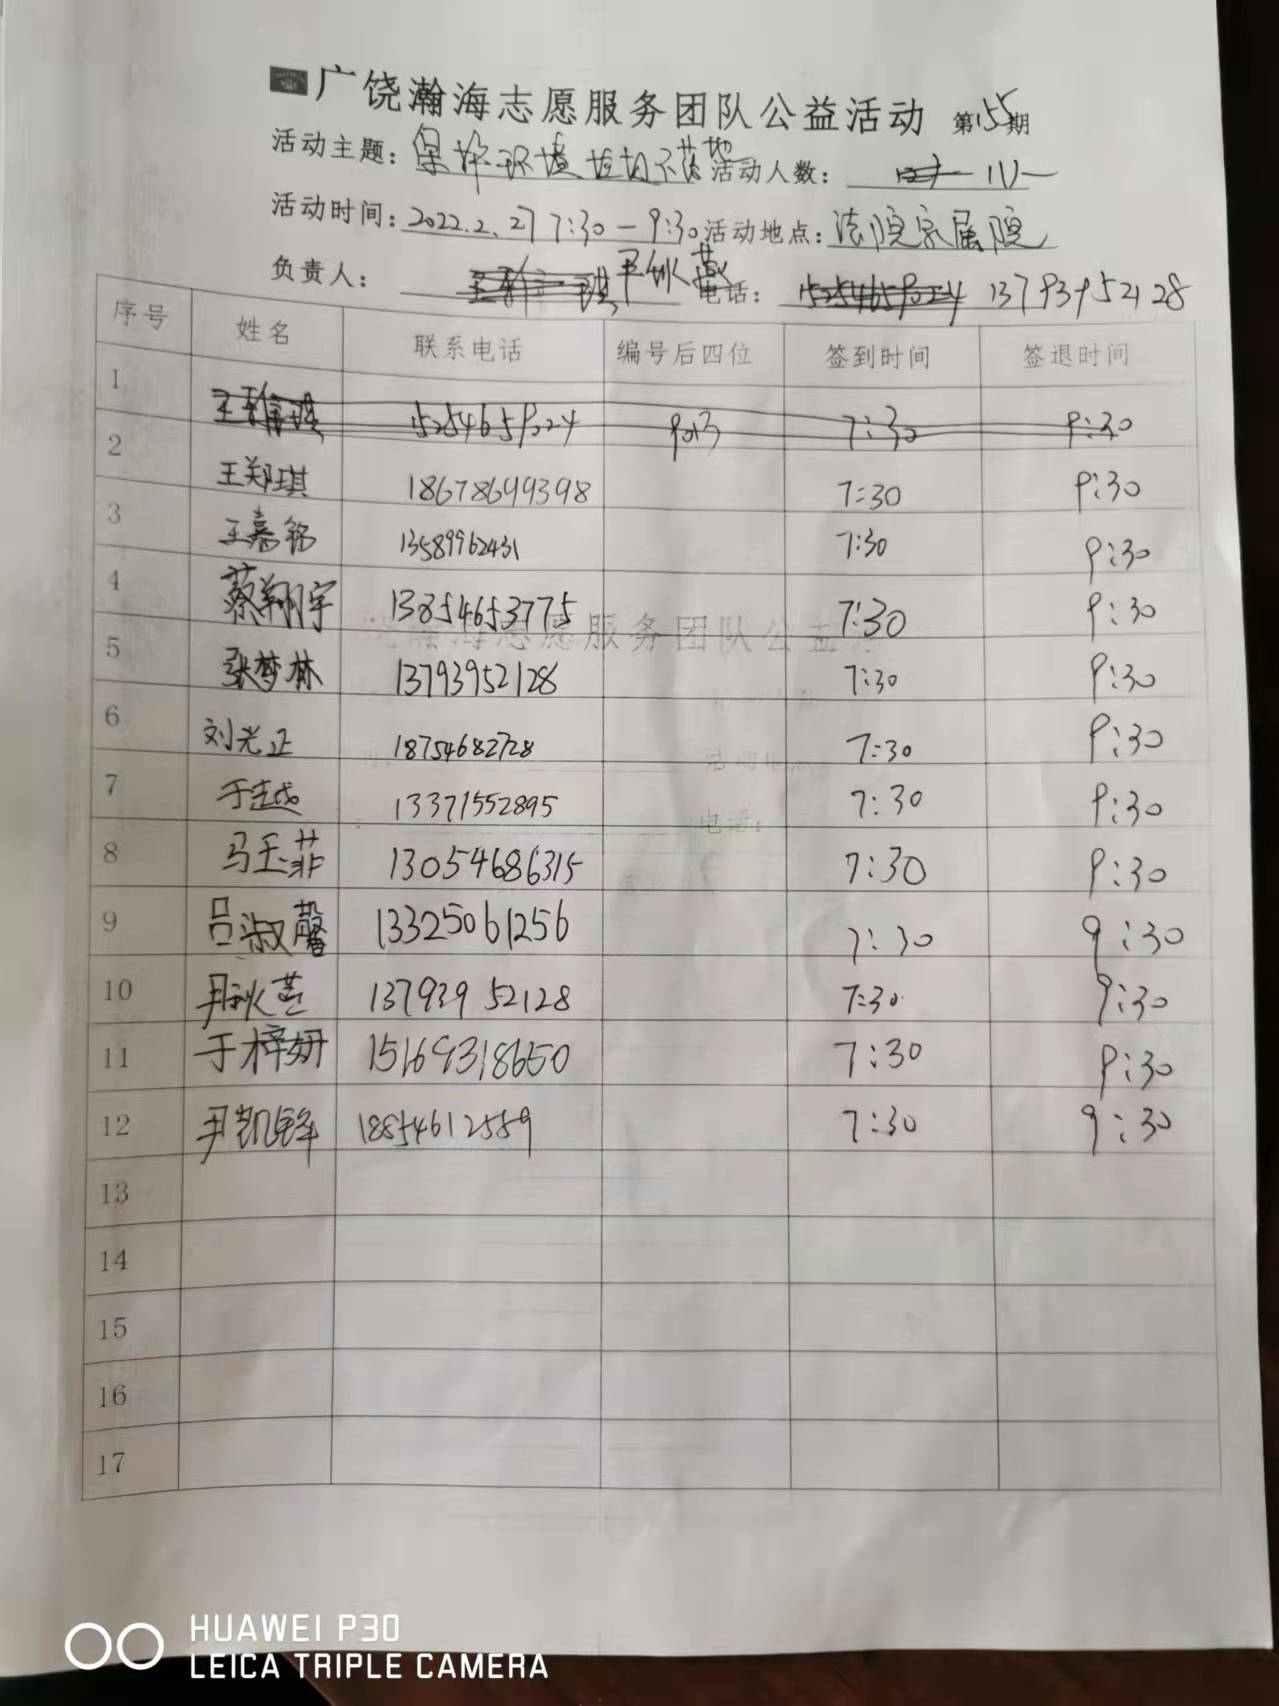 广饶瀚海志愿服务团队公益活动 第155期
活动主题：保护环境 垃圾不落地 活动人数：
活动时间：2022.2.27 7:30-9:30 活动地点：法院家属院
负责人： 尹秋燕 电话： 15254659024 13793952128
序号 姓名 联系电话 编号后四位 签到时间 签退时间
1 15254659024 7:30 9:30
2 王郑琪 18678699398 7:30 9:30
3 王嘉铭 13589962431 7:30 9:30
4 蔡翔宇 13854653775 7:30 9:30
5 张梦林 13793952128 7:30 9:30
6 刘光正 18754682728 7:30 9:30
7 于越 13371552895 7:30 9:30
8 马玉菲 13054686315 7:30 9:30
9 吕淑馨 13325061256 7:30 9:30
10 尹秋芸 13793952128 7:30 9:30
11 于梓妍 15169318650 7:30 9:30
12 尹凯锋 18854612559 7:30 9:30
13
14
15
16
17
HUAWEI P30
LEICA TRIPLE CAMERA